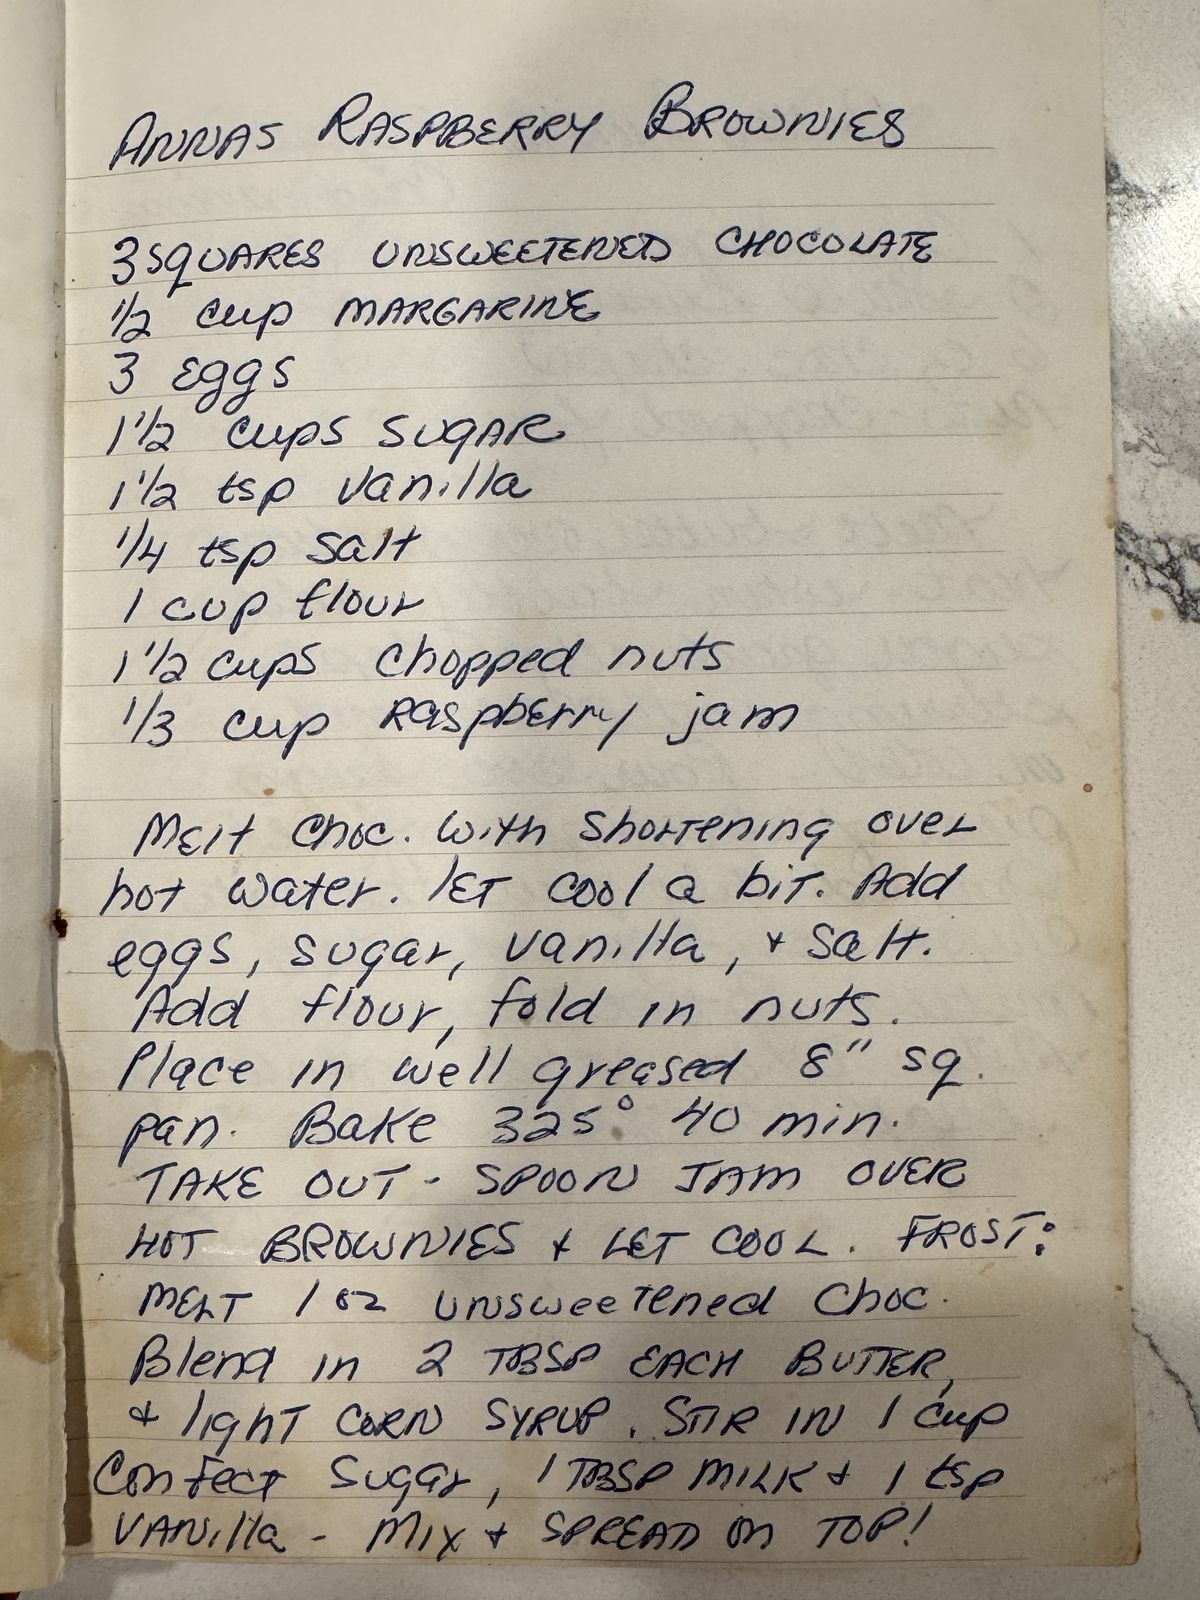 ANNAS RASPBERRY BROWNIES
3 SQUARES UNSWEETENED CHOCOLATE
1/2 cup MARGARINE
3 Eggs
1 1/2 cups SUGAR
1 1/2 tsp vanilla
1/4 tsp Salt
1 cup flour
1 1/2 cups chopped nuts
1/3 cup Raspberry jam
Melt Choc. With Shortening over
hot water. let cool a bit. Add
eggs, sugar, vanilla, & Salt.
Add flour, fold in nuts.
Place in well greased 8" sq.
pan. Bake 325° 40 min.
TAKE OUT - SPOON JAM OVER
HOT BROWNIES & LET COOL. FROST:
MELT 1 oz unsweetened Choc.
Blend in 2 TBSP EACH BUTTER,
& light CORN SYRUP. STIR IN 1 cup
Confect Sugar, 1 TBSP MILK & 1 tsp
VANilla - Mix & SPREAD ON TOP!